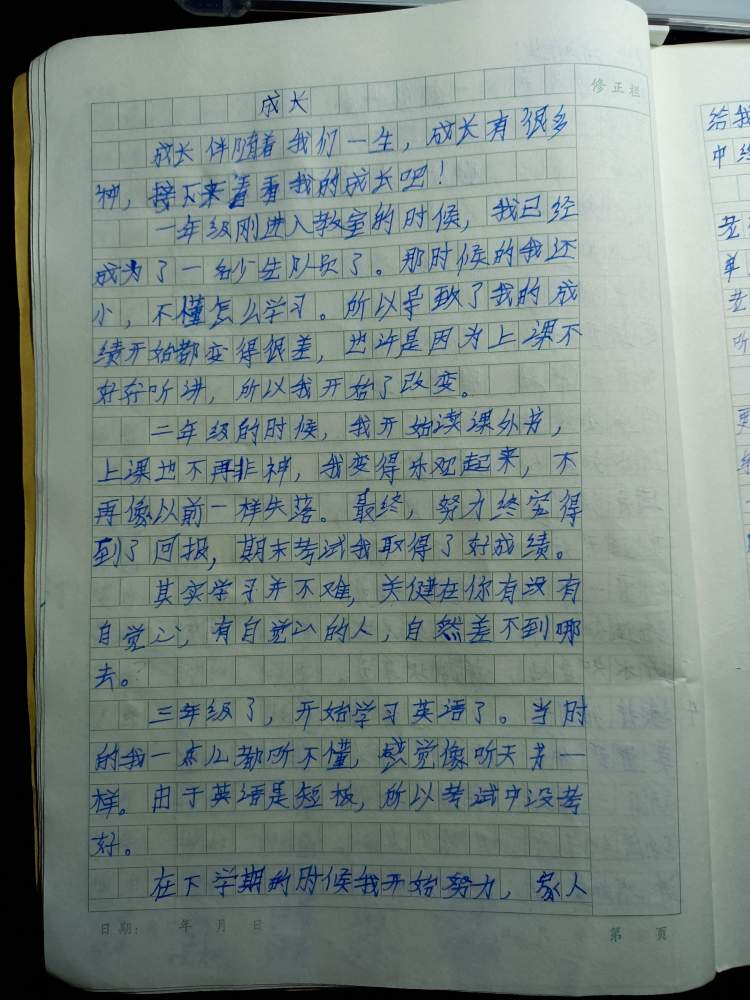 修正栏
成长
成长伴随着我们一生，成长有很多
种，接下来看看我的成长吧！
一年级刚进入教室的时候，我已经
成为了一名少先队员了。那时候的我还
小，不懂怎么学习。所以导致了我的成
绩开始都变得很差，也许是因为上课不
好好听讲，所以我开始了改变。
二年级的时候，我开始读课外书，
上课也不再非神，我变得乐观起来，不
再像以前一样失落。最终，努力终究得
到了回报，期末考试我取得了好成绩。
其实学习并不难，关健在你有没有
自觉心，有自觉心的人，自然差不到哪
去。
三年级了，开始学习英语了。当时
的我一点儿都听不懂，感觉像听天书一
样。由于英语是短板，所以考试中没考
好。
在下学期的时候我开始努力，家人
日期： 年 月 日
第 页
给我
中
单
听
更